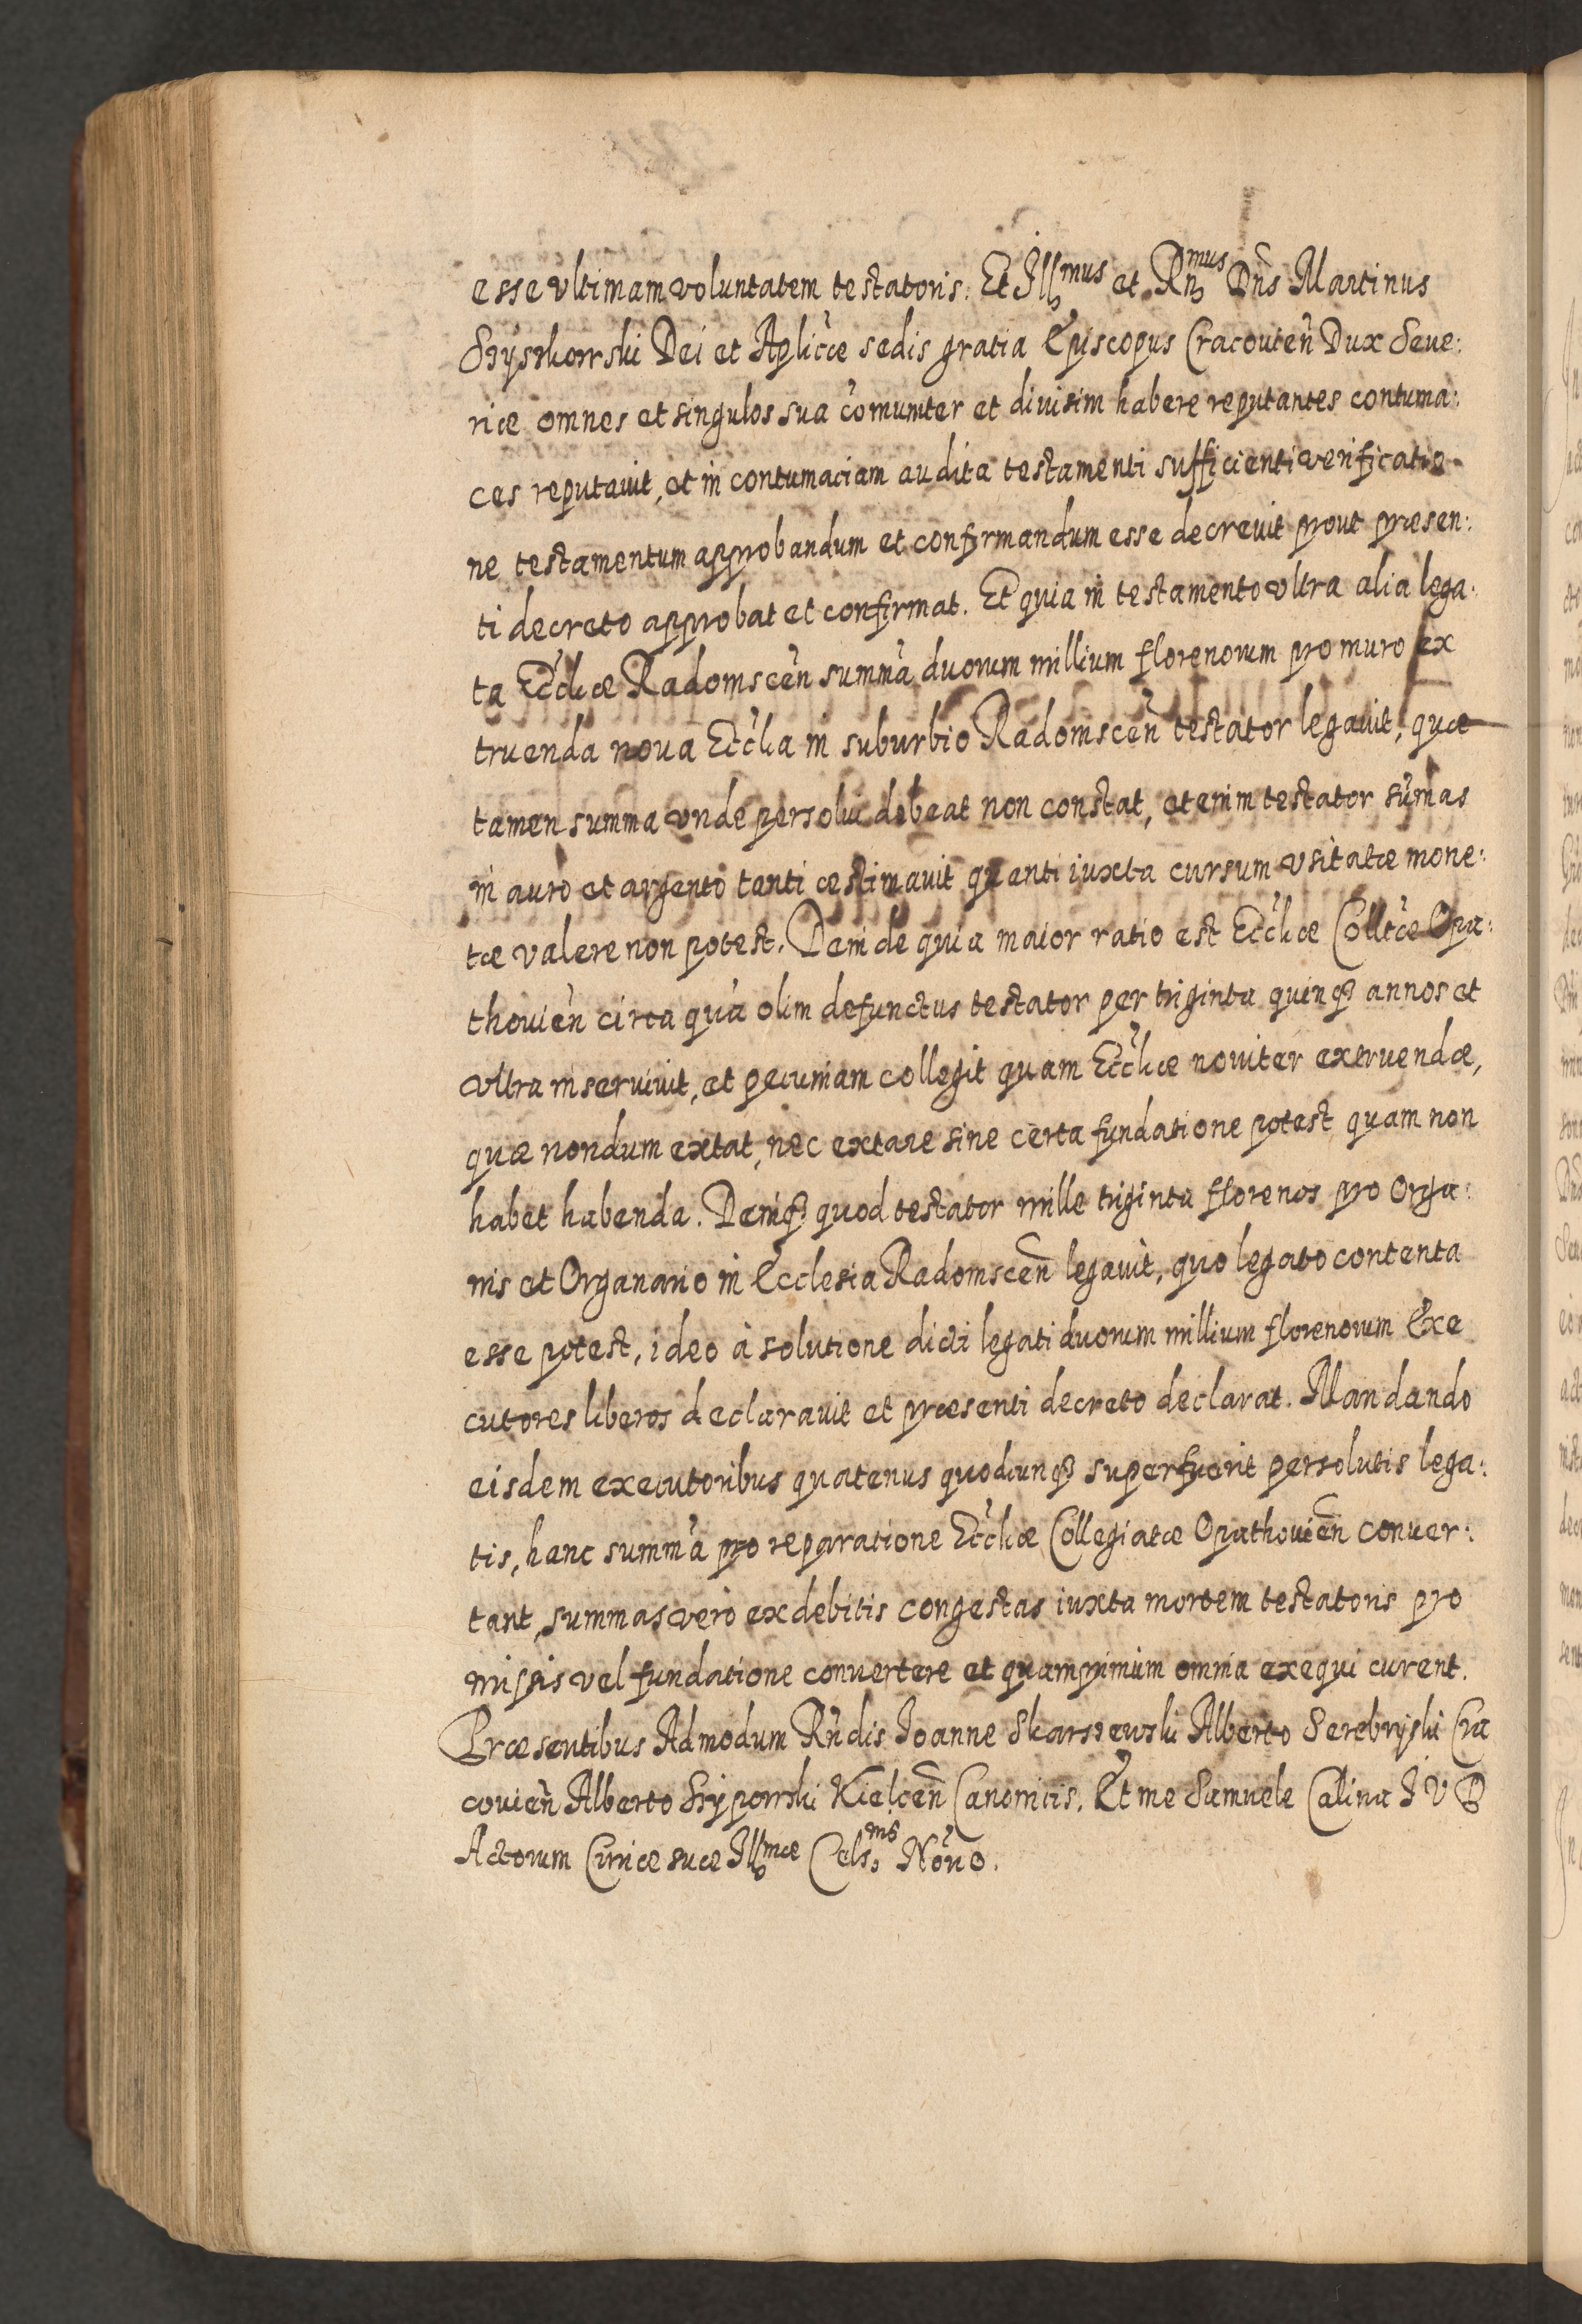 esse vltimam voluntatem testatoris. Et Illmus et Rnmus Dns Martinus
Szyszkowski Dei et Aplicæ sedis gratia Episcopus Cracouien Dux Seue:
riæ omnes et singulos sua comuniter et diuisim habere reputantes contuma:
ces reputauit, et in contumaciam audita testamenti sufficienti verificatio
ne testamentum approbandum et confirmandum esse decreuit prout præsen:
ti decreto approbat et confirmat. Et quia in testamento vltra alia lega:
ta Eccliæ Radomscen summa duorum millium florenorum pro muro ex
truenda noua Ecclia in suburbio Radomscen testator legauit, quæ
tamen summa vnde persolui debeat non constat, etenim testator sumas
in auro et argento tanti æstimauit quanti iuxta cursum vsitatæ mone:
tæ valere non potest. Deinde quia maior ratio est Eccliæ Colltæ Opa:
thouien circa qua olim defunctus testator per triginta quinq annos et
vltra inseruiuit, et pecuniam collegit quam Eccliæ nouiter extruendæ,
quæ nondum extat, nec extare sine certa fundatione potest quam non
habet habenda. Deniq quod testator mille triginta florenos pro Orga:
nis et Organario in Ecclesia Radomscen legauit, quo legato contenta
esse potest, ideo à solutione dicti legati duorum millium florenorum Exe
cutores liberos declarauit et præsenti decreto declarat. Mandando
eisdem executoribus quatenus quodcunq superfuerit persolutis lega:
tis, hanc summa pro reparatione Eccliæ Collegiatæ Opathouien conuer:
tant, summas vero ex debitis congestas iuxta mortem testatoris pro
missis vel fundatione conuertere et quamprimum omnia exequi curent.
Præsentibus Admodum Rndis Joanne Skarszewski Alberto Serebryski Cra
couien Alberto Szyporski Kielcen Canonicis. Et me Samuele Calina J V D
Actorum Curiæ suæ Illmæ Celsnis Norio.